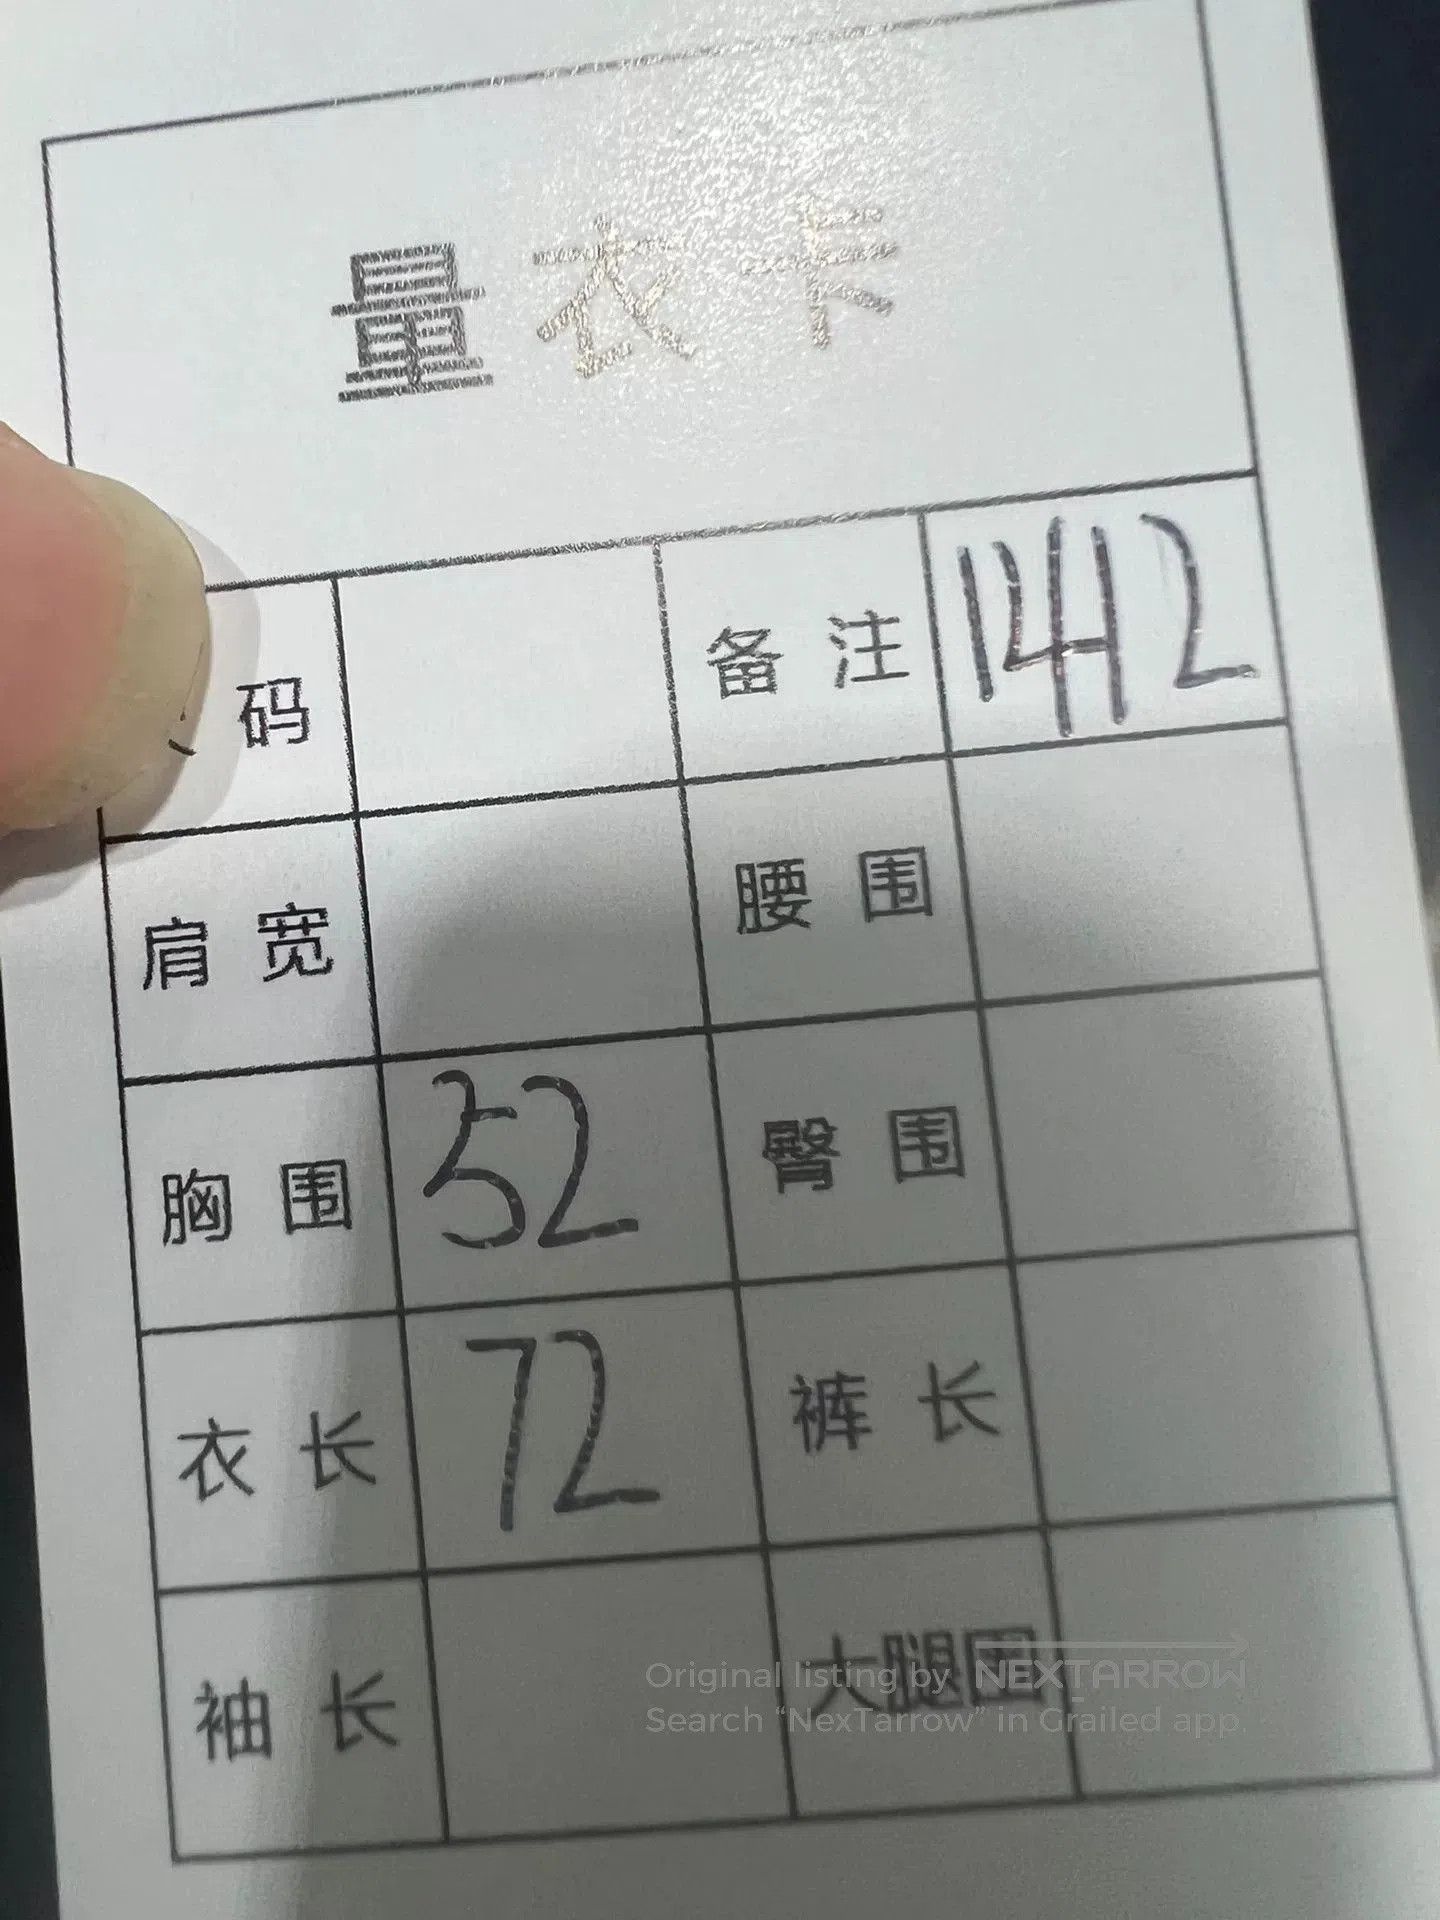 量衣卡
码 备注 1412
肩宽 腰围
胸围 52 臀围
衣长 72 裤长
袖长 大腿围
Original listing by NEXTARROW
Search “NexTarrow” in Grailed app.